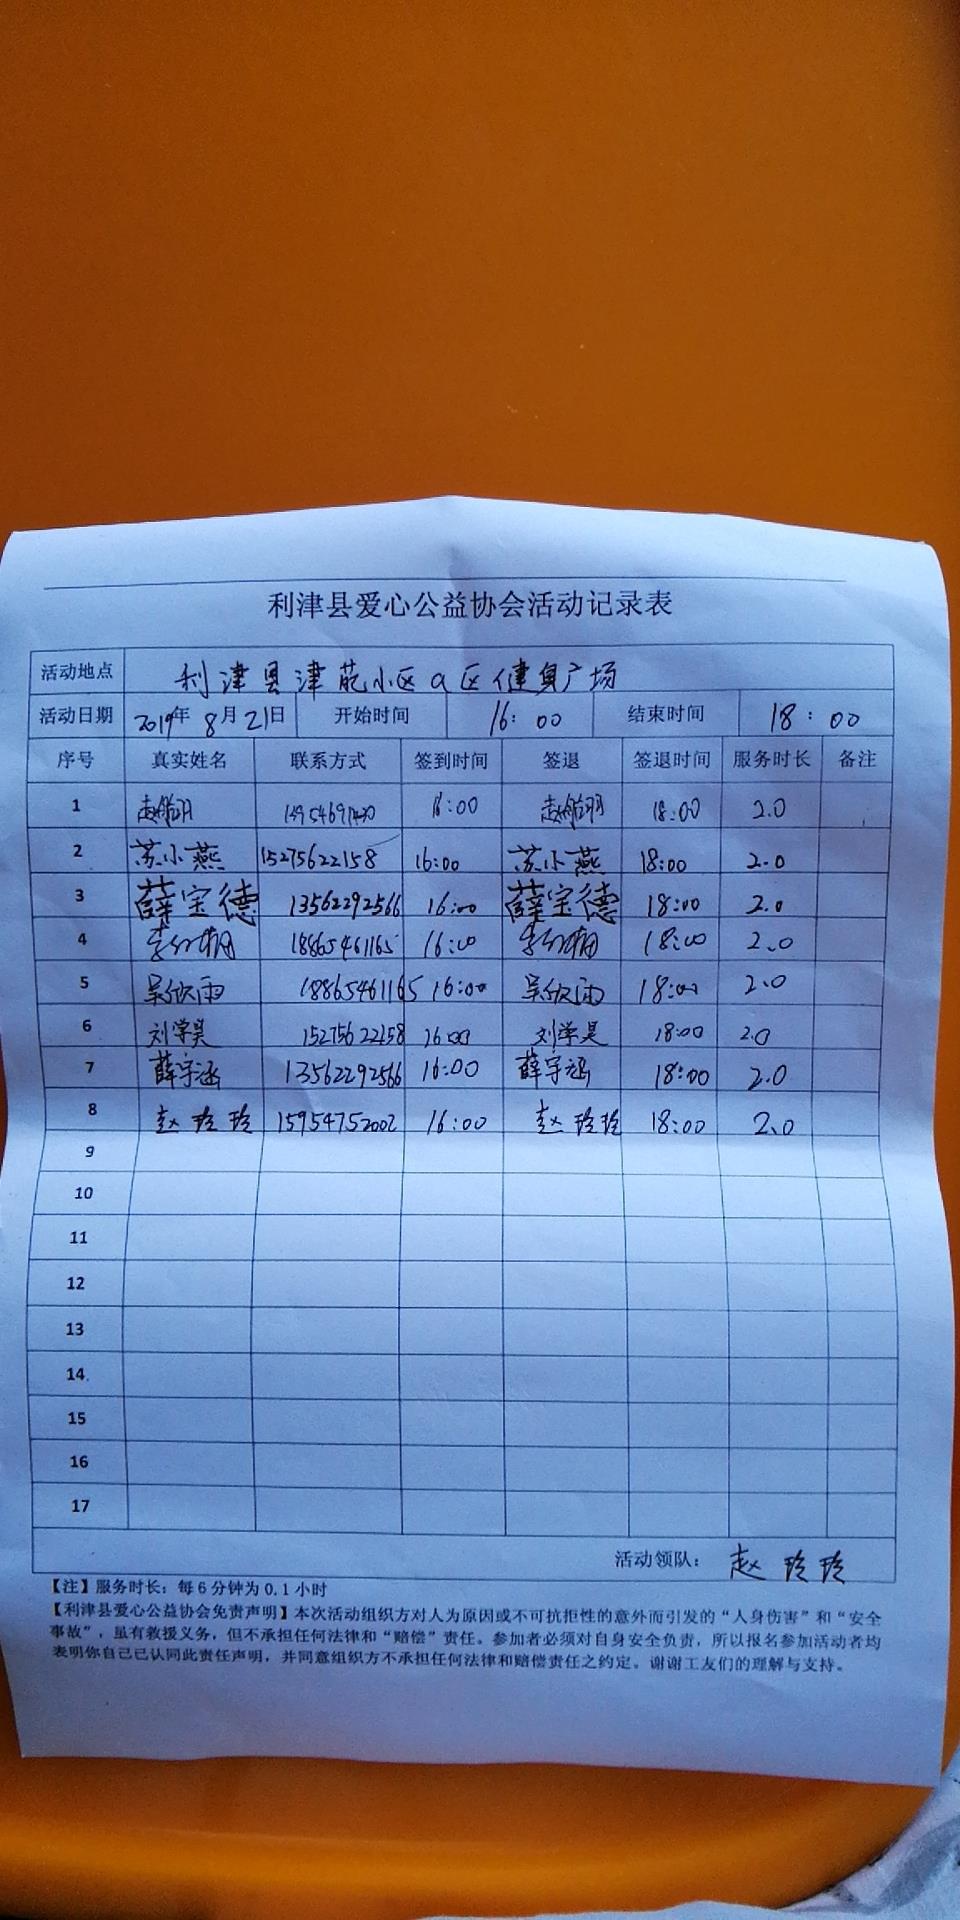 利津县爱心公益协会活动记录表
活动地点 利津县津苑小区a区健身广场
活动日期 2019年8月21日 开始时间 16:00 结束时间 18:00
序号 真实姓名 联系方式 签到时间 签退 签退时间 服务时长 备注
1 18:00 2.0
2 苏小燕 15275622158 16:00 苏小燕 18:00 2.0
3 薛宝德 13562292566 16:00 薛宝德 18:00 2.0
4 18865461165 16:00 18:00 2.0
5 吴欣雨 18865461165 16:00 吴欣雨 18:00 2.0
6 刘学昊 15275622158 16:00 刘学昊 18:00 2.0
7 薛宇涵 13562292566 16:00 薛宇涵 18:00 2.0
8 赵玲玲 15954752002 16:00 赵玲玲 18:00 2.0
9
10
11
12
13
14
15
16
17
活动领队: 赵玲玲
【注】服务时长: 每6分钟为0.1小时
【利津县爱心公益协会免责声明】本次活动组织方对人为原因或不可抗拒性的意外而引发的“人身伤害”和“安全
事故”, 虽有救援义务, 但不承担任何法律和“赔偿”责任。参加者必须对自身安全负责, 所以报名参加活动者均
表明你自己已认同此责任声明, 并同意组织方不承担任何法律和赔偿责任之约定。谢谢工友们的理解与支持。